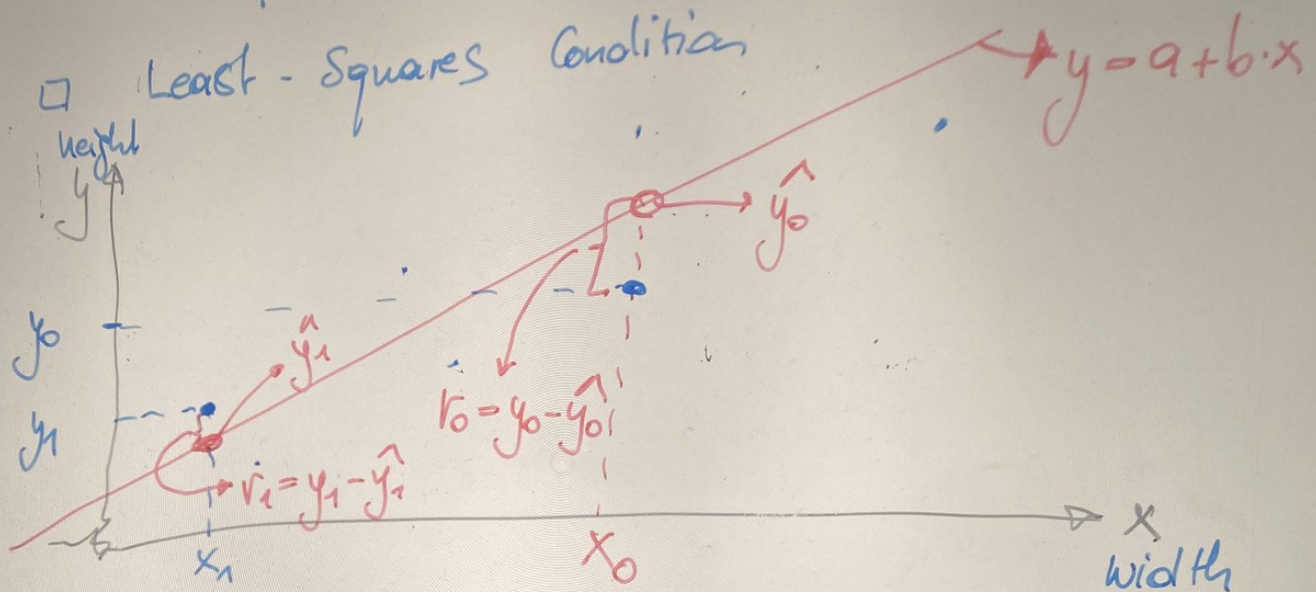 □ Least-Squares Condition
y = a + b·x
height
y
ŷ₀
y₀
ŷ₁
y₁
r₀ = y₀ - ŷ₀
r₁ = y₁ - ŷ₁
x₁
x₀
x
width